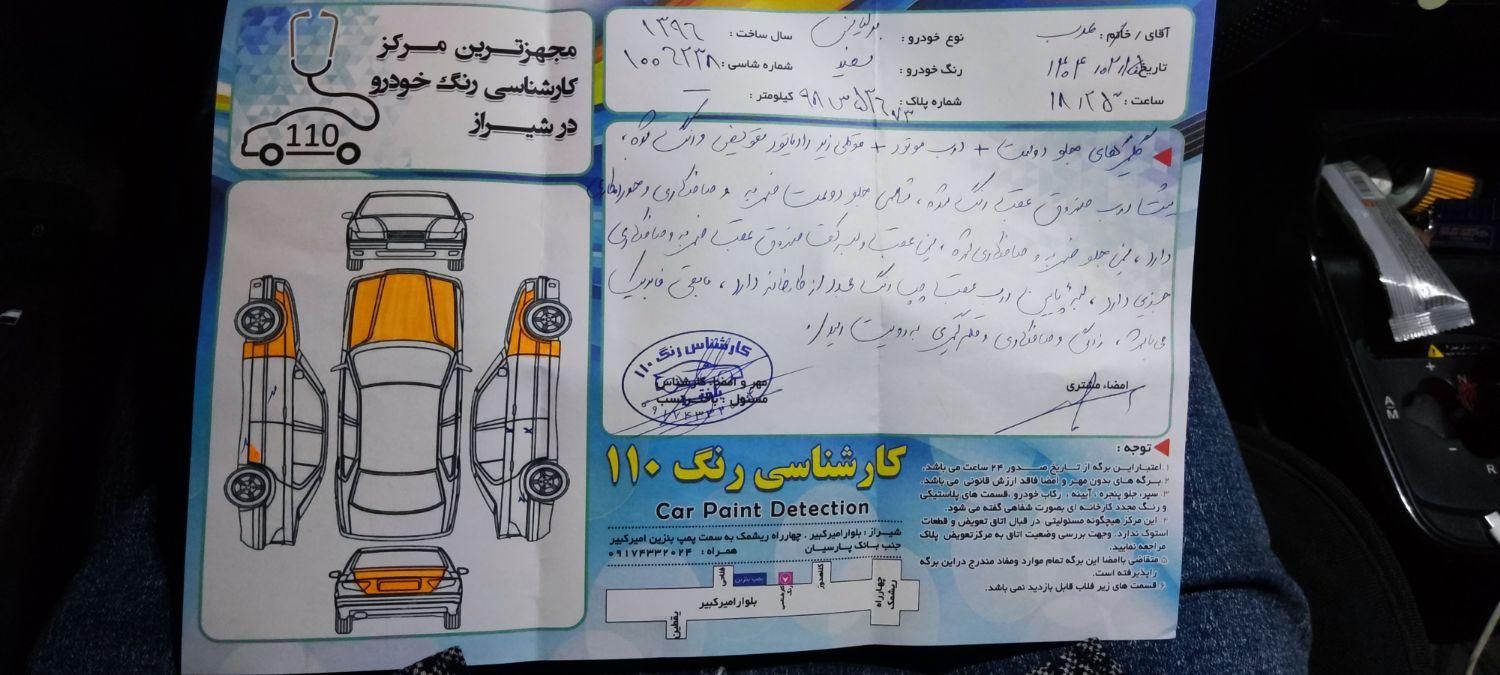 مجهزترین مرکز
کارشناسی رنگ خودرو
در شیراز
110
آقای / خانم :
نوع خودرو : برلیانس
سال ساخت : ۱۳۹۶
تاریخ :
رنگ خودرو : سفید
شماره شاسی : ۱۰۰۶۲۳۸
ساعت : ۱۸,۲۵
شماره پلاک :
کیلومتر : —
گلگیرهای جلو دو سمت + درب موتور + زیر رادیاتور تعویض و رنگ شده ،
پشت درب صندوق عقب رنگ شده ، جلو دو سمت ضربه و صافکاری و خوردگی
دارد ، جلو ضربه و صافکاری شده ، عقب و کف صندوق عقب ضربه و صافکاری
جزیی دارد ، لبه پایین درب عقب چپ رنگ مجدد از کارخانه دارد ، مابقی فابریک
می‌باشد ، رنگ و صافکاری و قلم‌گیری به رویت رسید .
کارشناس رنگ ۱۱۰
مهر و امضاء کارشناس
مسئول :
امضاء مشتری
توجه :
۱. اعتبار این برگه از تاریخ صدور ۲۴ ساعت می باشد.
۲. برگه های بدون مهر و امضا فاقد ارزش قانونی می باشد.
۳. سپر، جلو پنجره ، آیینه ، رکاب خودرو ،قسمت های پلاستیکی
و رنگ مجدد کارخانه ای بصورت شفاهی گفته می شود.
۴. این مرکز هیچگونه مسئولیتی در قبال اتاق تعویض و قطعات
استوک ندارد. وجهت بررسی وضعیت اتاق به مرکز تعویض پلاک
مراجعه نمایید.
۵. متقاضی باامضا این برگه تمام موارد ومفاد مندرج دراین برگه
راپذیرفته است.
۶. قسمت های زیر قلاب قابل بازدید نمی باشد.
کارشناسی رنگ ۱۱۰
Car Paint Detection
شیراز : بلوار امیرکبیر . چهارراه ریشمک به سمت پمپ بنزین امیرکبیر
جنب بانک پارسیان
همراه : ۰۹۱۷۴۳۳۲۰۲۴
فلاحی
پمپ بنزین
کارشناسی رنگ
گلها
چهارراه ریشمک
بلوار امیرکبیر
یقطین
A
M
N
R